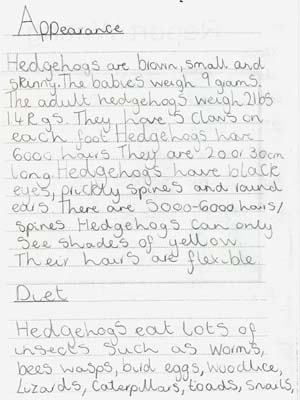 Appearance
Hedgehogs are brown, small and
skinny. The babies weigh 9 grams.
The adult hedgehogs weigh 2lbs
1.4Kgs. They have 5 claws on
each foot Hedgehogs have
6000 hairs They are 20 or 30cm
long. Hedgehogs have black
eyes, prickly spines and round
ears. There are 5000-6000 hairs/
spines. Hedgehogs can only
see shades of yellow.
Their hairs are flexible.
Diet
Hedgehogs eat lots of
insects such as worms,
bees wasps, bird eggs, woodlice,
Lizards, Caterpillars, toads, snails,